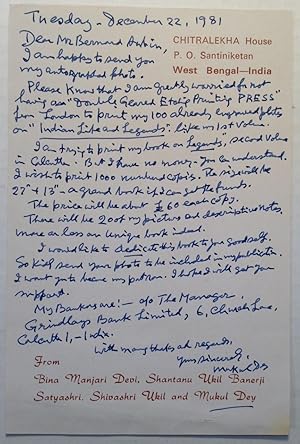 Tuesday - December 22, 1981
CHITRALEKHA House
P. O. Santiniketan
West Bengal—India
Dear Mr. Bernard
I am happy to send you
my autographed photo.
Please know that I am greatly worried for not
having a "Doubly Geared Etching Printing PRESS"
from London to print my 100 already engraved plates
on "Indian Life and Legends" like my 1st Volume.
I am trying to print my book on Legends, second Volume
in Calcutta. But I have no money - You can understand.
I wish to print 1000 numbered copies. The size will be
27" x 13" - a grand book if I can get the funds.
The price will be about £60 each copy.
There will be 200 of my pictures and descriptive notes.
more or less an unique book indeed.
I would like to dedicate this book to you Good self.
So kindly send your photo to be included in my publication.
I want you to become my patron. I hope I will get your
support.
My Bankers are: - c/o The Manager,
Grindlays Bank Limited, 6, Church Lane,
Calcutta 1, - India.
with many thanks and regards,
Yours sincerely,
Mukul Dey
From
Bina Manjari Devi, Shantanu Ukil Banerji
Satyashri, Shivashri Ukil and Mukul Dey